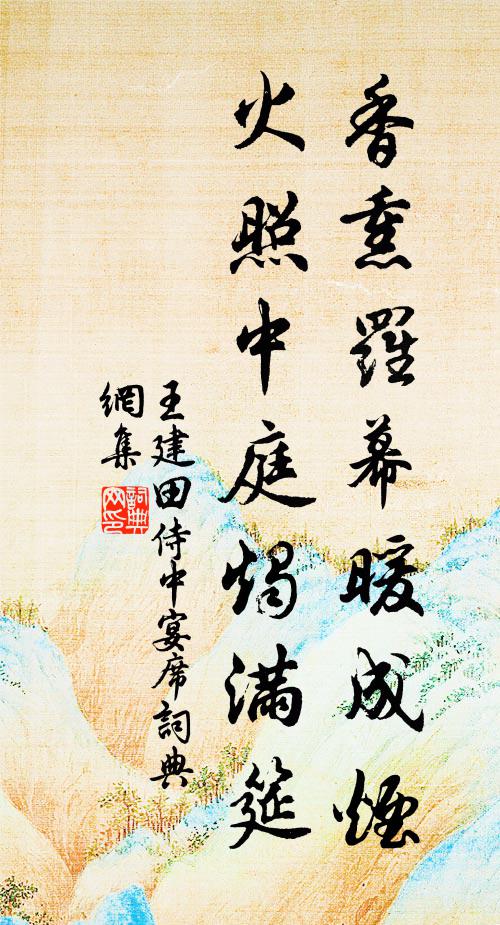 香熏羅幕暖成煙
火照中庭燭滿筵
王建田侍中宴席詞典
網集
詞典
网印